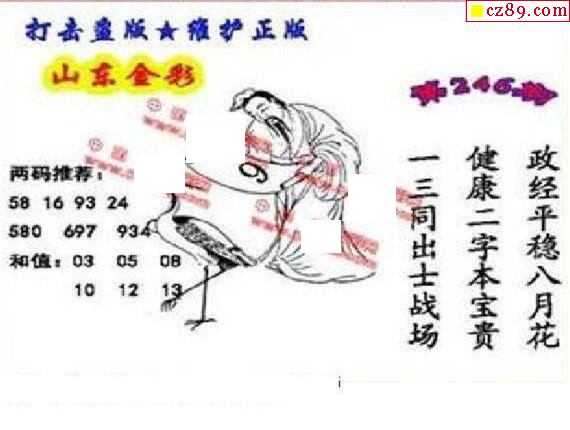 cz89.com
打击盗版★维护正版
山东金彩
第246期
政经平稳八月花
健康二字本宝贵
一三同出士战场
两码推荐:
58 16 93 24
580 697 934
和值: 03 05 08
10 12 13
9